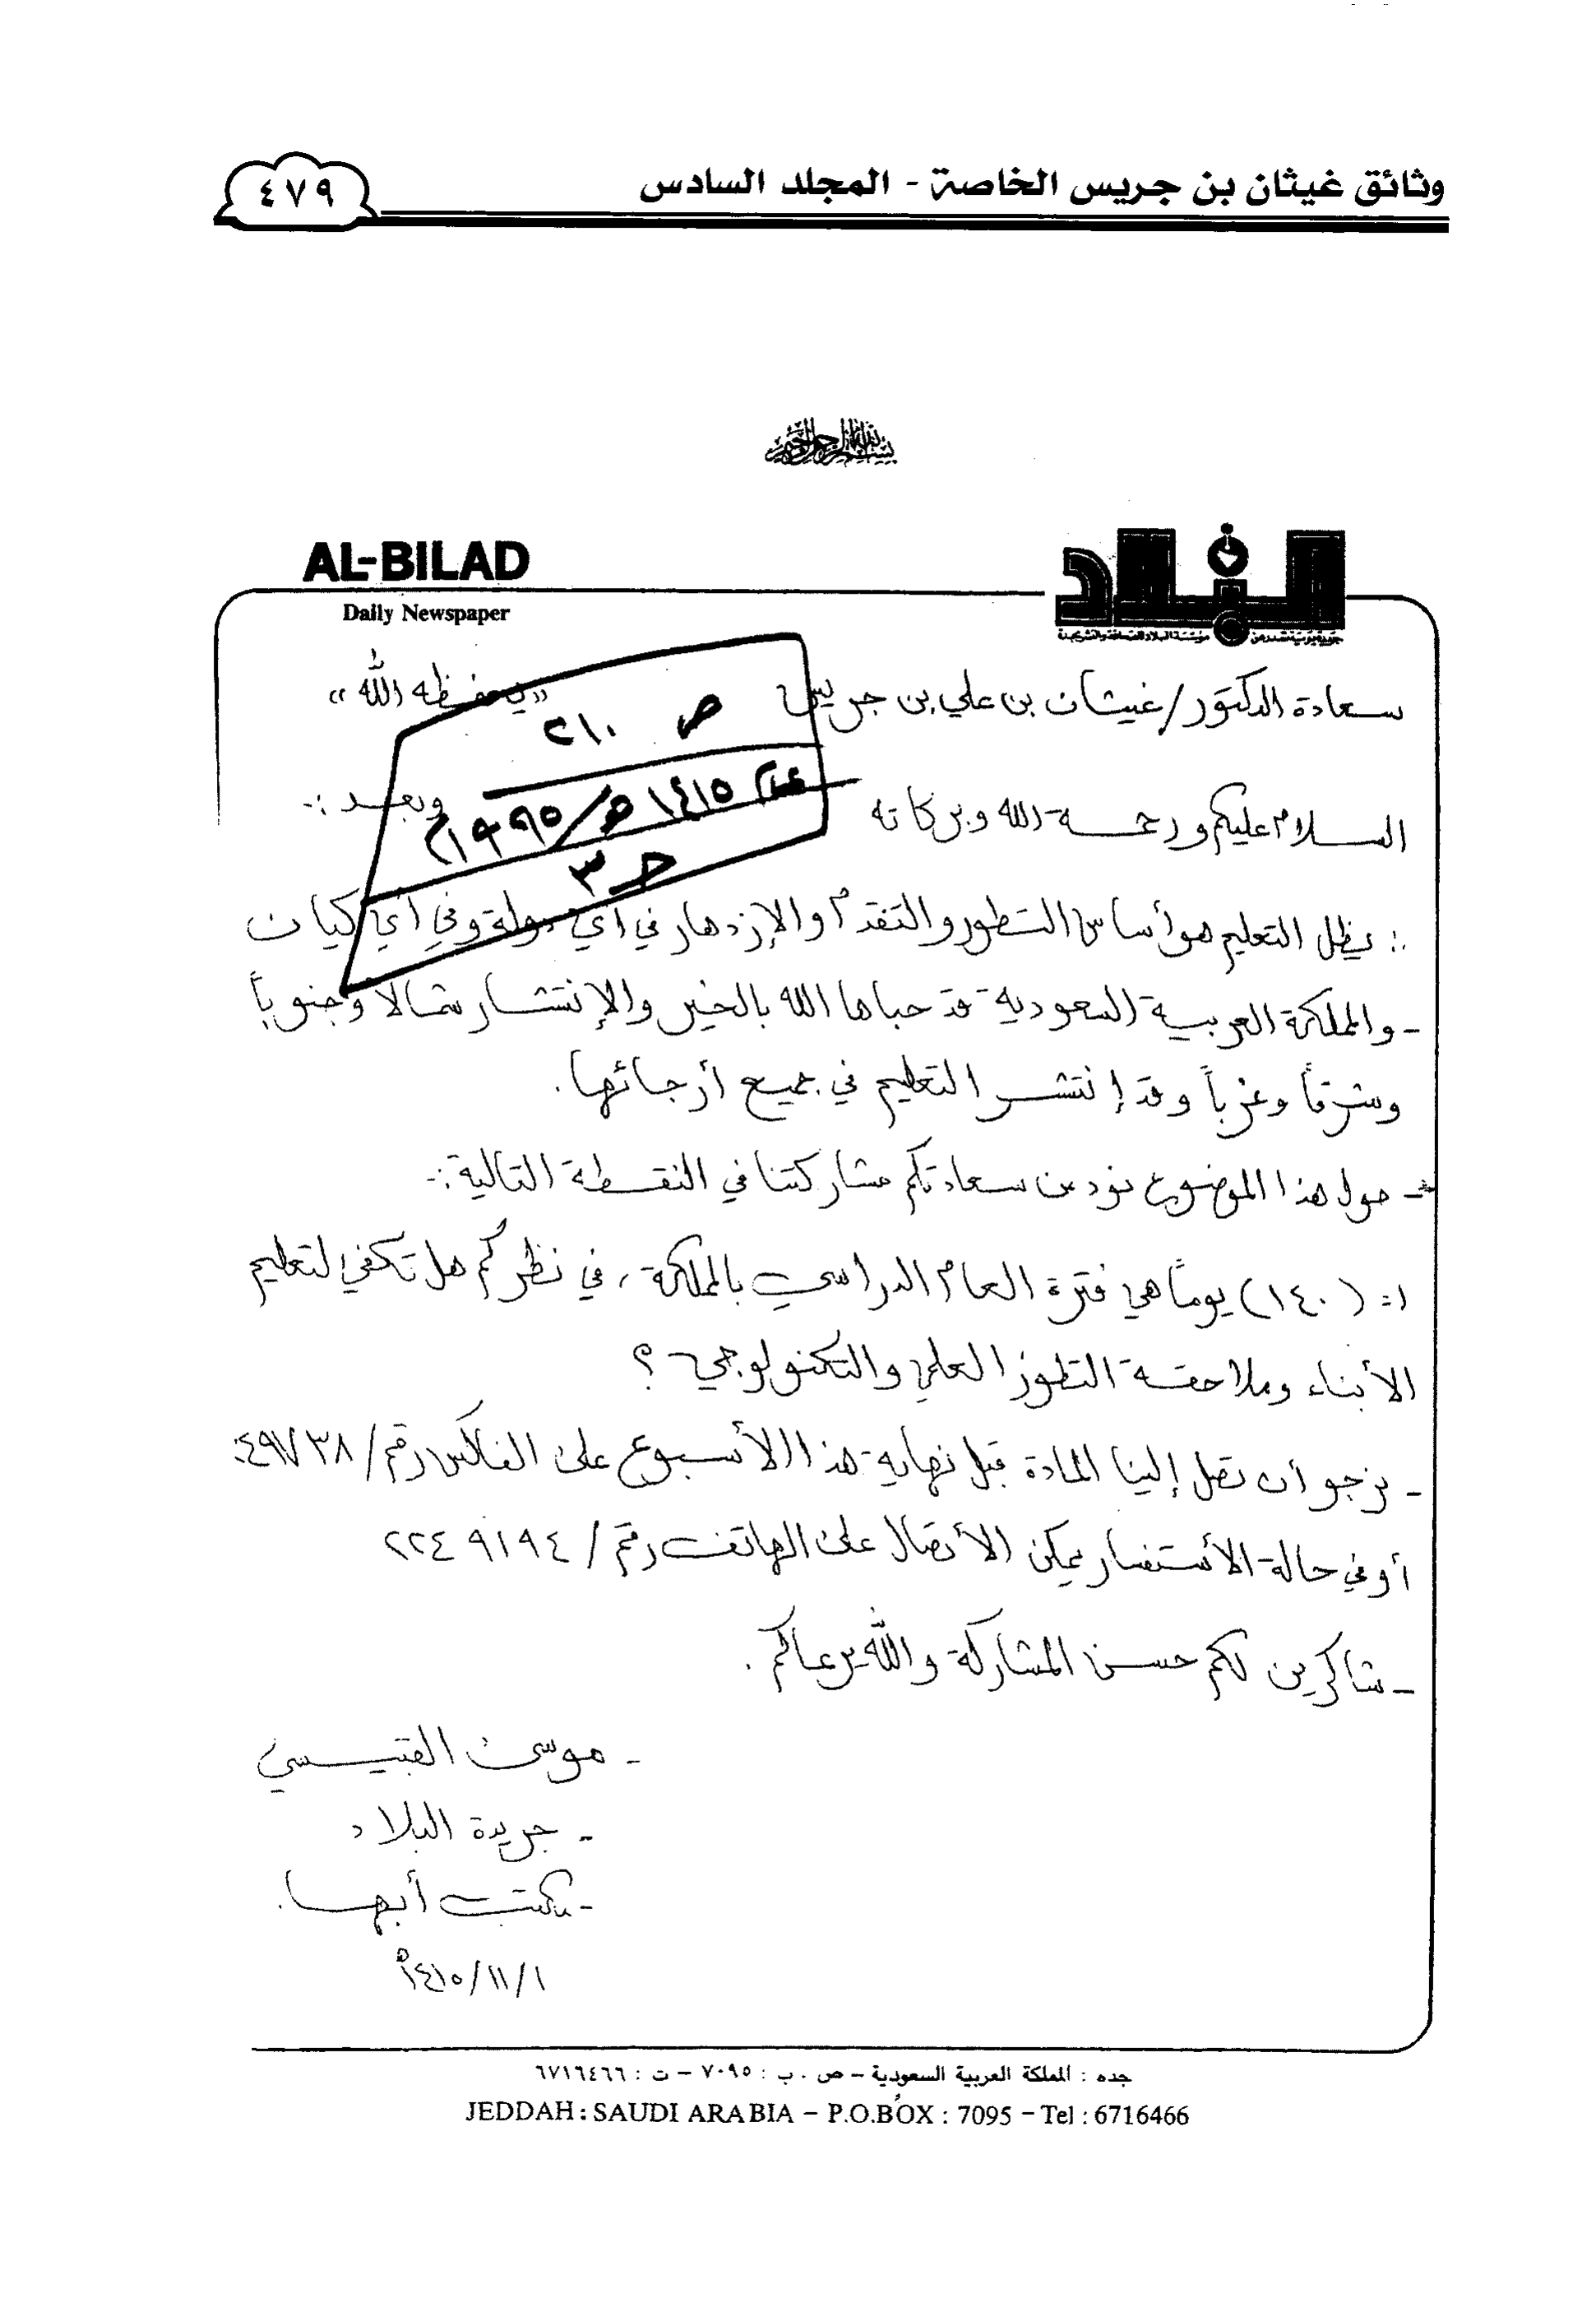 وثائق غيثان بن جريس الخاصة - المجلد السادس
٤٧٩
بسم الله الرحمن الرحيم
AL-BILAD
البلاد
Daily Newspaper
جريدة يومية تصدر عن مؤسسة البلاد للصحافة والنشر بجدة
سعادة الدكتور / غيثان بن علي بن جريس «يحفظه الله»
ص ٢١٠
السلام عليكم ورحمة الله وبركاته وبعد :-
عام ١٤١٥هـ/١٩٩٥م
حـ ٣
:: يظل التعليم هو أساس التطور والتقدم والإزدهار في أي دولة وفي أي كيان
- والمملكة العربية السعودية قد حباها الله بالخير والإنتشار شمالاً وجنوباً
وشرقاً وغرباً وقد إنتشر التعليم في جميع أرجائها.
- حول هذا الموضوع نود من سعادتكم مشاركتنا في النقطة التالية :-
١- (١٤٠) يوماً هي فترة العام الدراسي بالمملكة ، في نظركم هل تكفي لتعليم
الأبناء وملاحقة التطور العلمي والتكنولوجي ؟
- نرجو أن تصل إلينا المادة قبل نهاية هذا الأسبوع على الفاكس رقم /
أو في حالة الأستفسار يمكن الأتصال على الهاتف رقم / ٢٢٤٩١٩٤
- شاكرين لكم حسن المشاركة والله يرعاكم .
- موسى القبيسي
- جريدة البلاد
- مكتب أبها .
١/١١/١٤١٥هـ
جده : المملكة العربية السعودية - ص . ب : ٧٠٩٥ - ت : ٦٧١٦٤٦٦
JEDDAH : SAUDI ARABIA - P.O.BOX : 7095 - Tel : 6716466